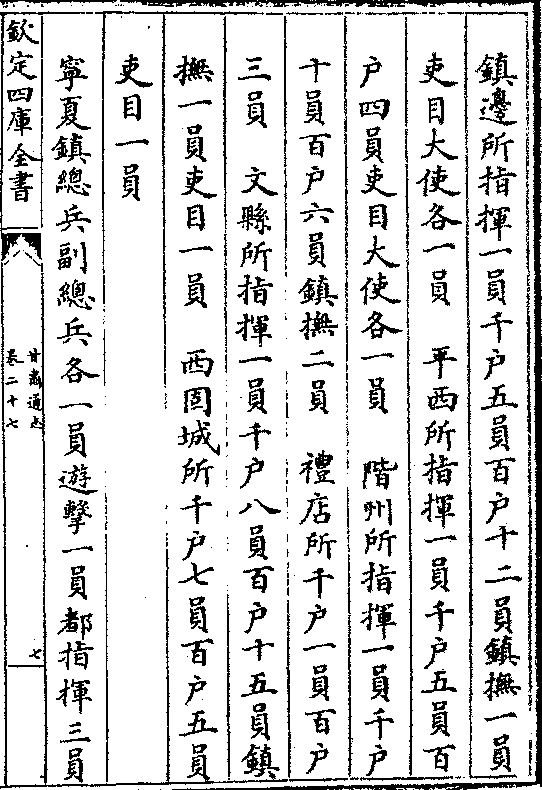 鎮邊所指揮一員千户五員百户十二員鎮撫一員
吏目大使各一員　平西所指揮一員千户五員百
户四員吏目大使各一員　階州所指揮一員千户
十員百户六員鎮撫二員　禮店所千户一員百户
三員　文縣所指揮一員千户八員百户十五員鎮
撫一員吏目一員　西固城所千户七員百户五員
吏目一員
寧夏鎮總兵副總兵各一員遊擊一員都指揮三員
欽定四庫全書
甘肅通志
卷二十七
七